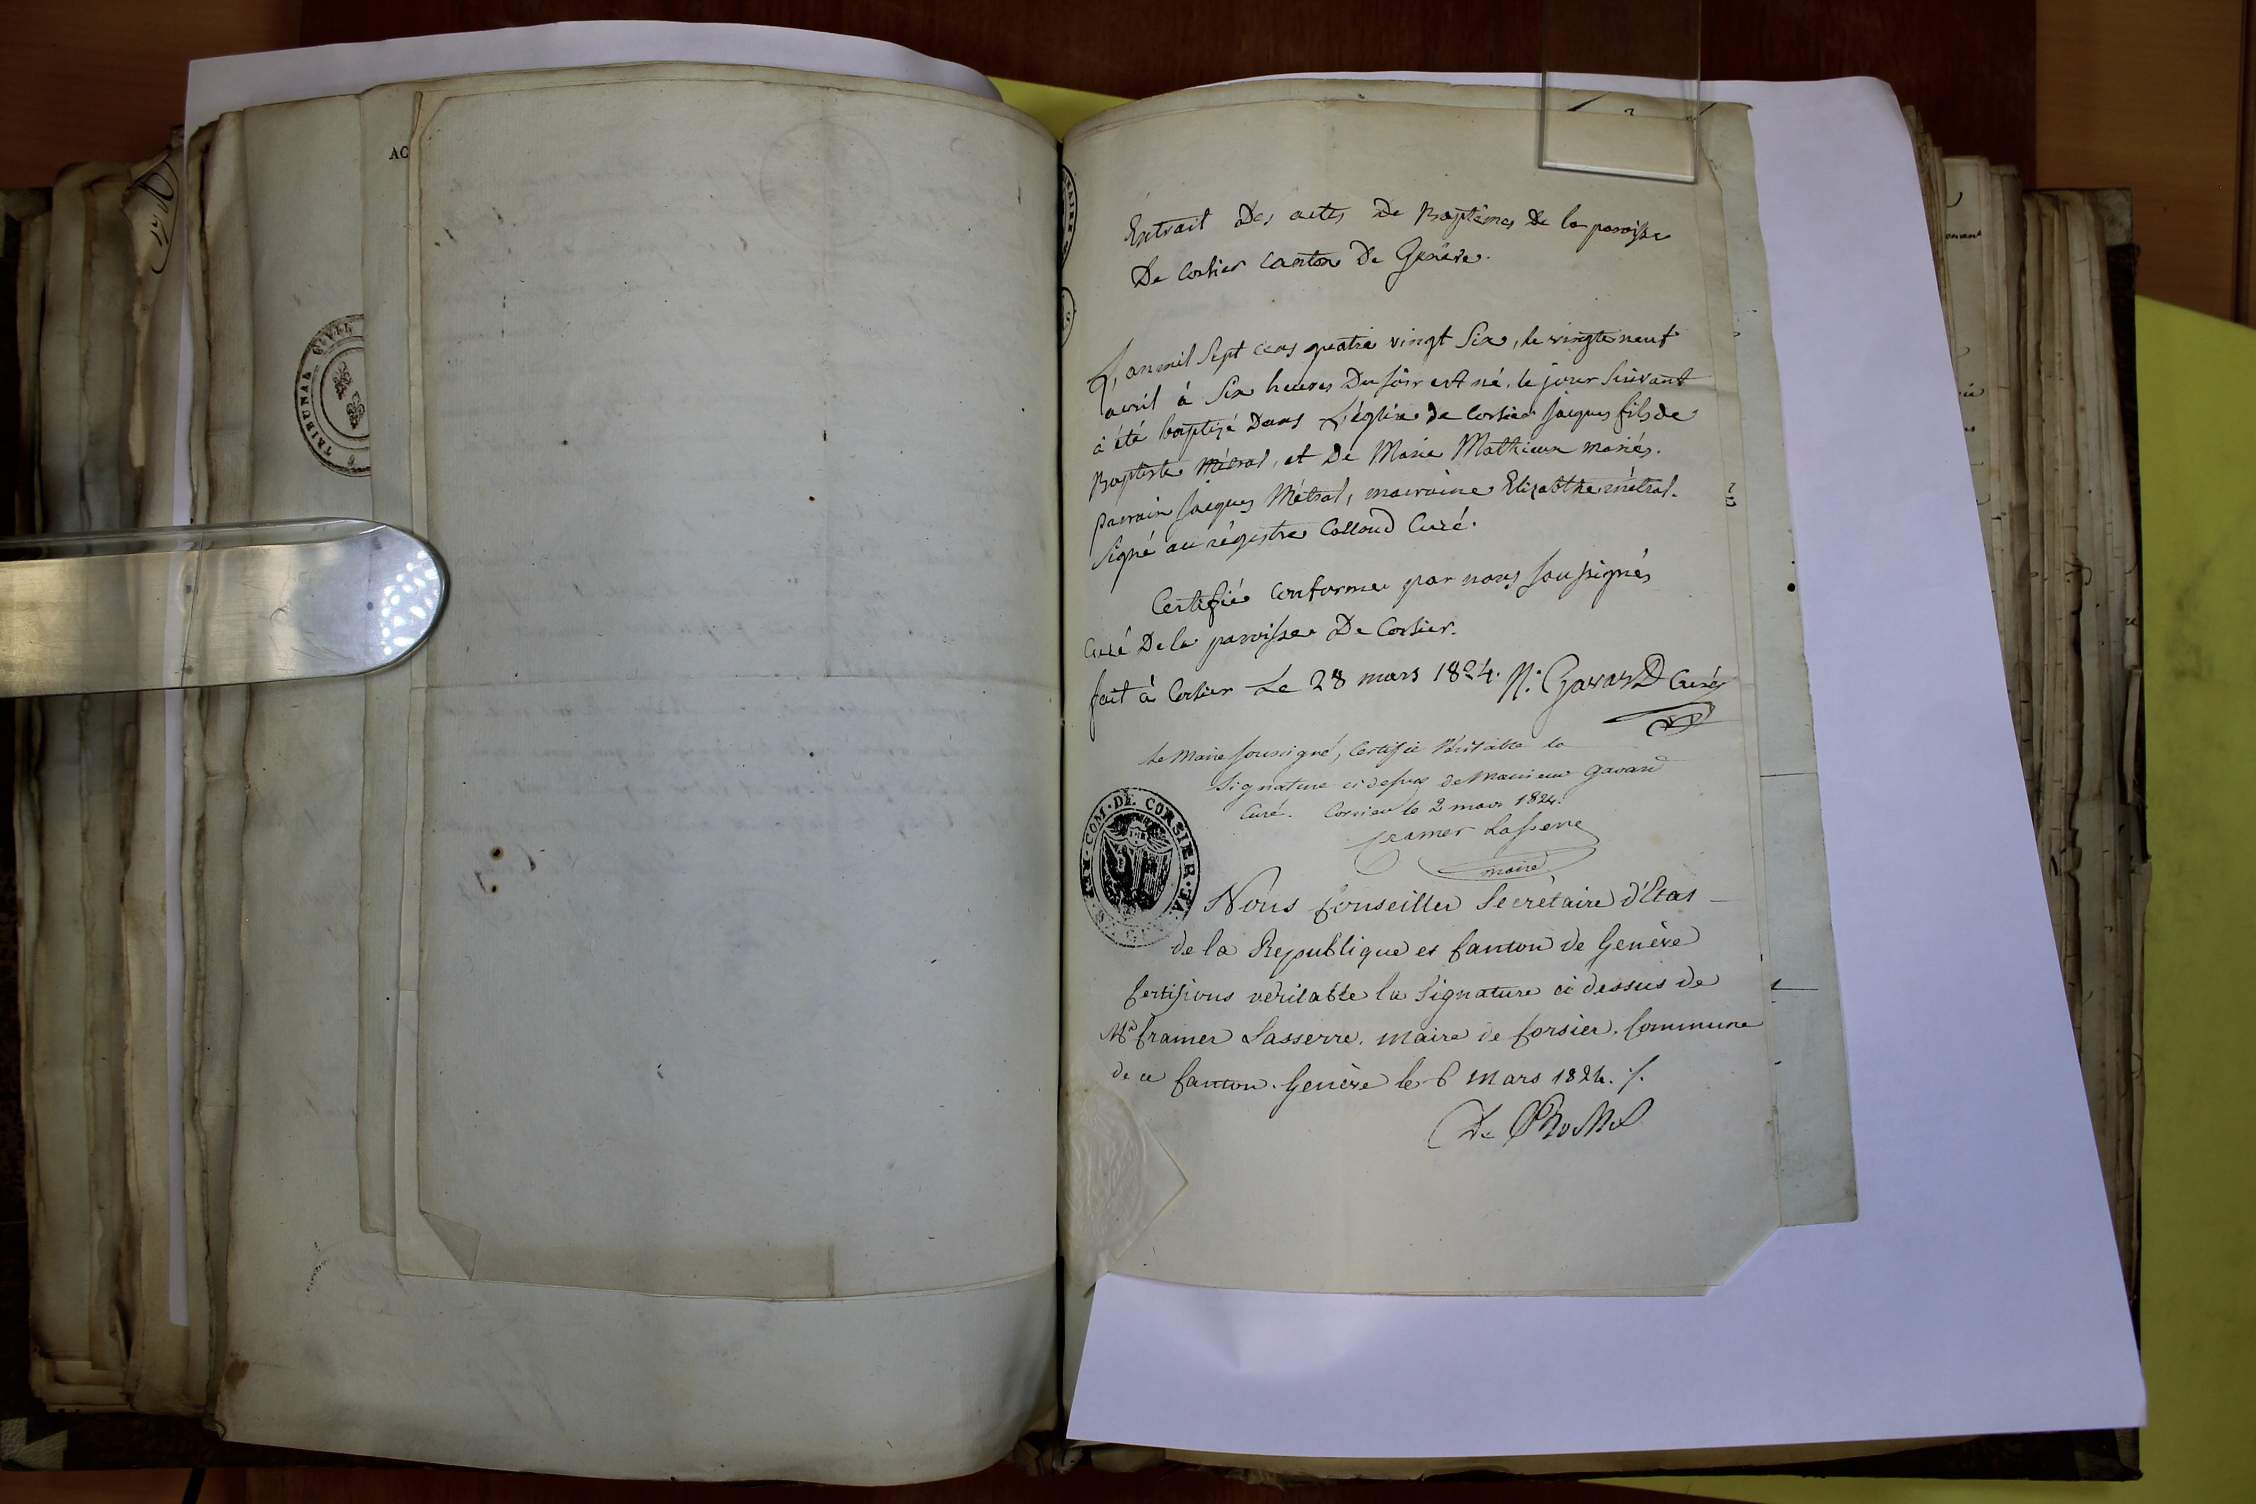 AC
TRIBUNAL CIVIL
Extrait des actes de Baptêmes de la paroisse
De Corsier canton De Genève.
L'an mil sept cens quatre vingt six, le vingte neuf
avril à six heures Du soir est né, le jour suivant
à été baptizé Dans L'église de Corsier jacques fils de
Baptiste Métral, et De Marie Mathieux mariés.
parrain jacques Métral, marraine Elizabthe métral.
signé au régistre Colloud Curé.
Certifié conforme par nous soussignés
Curé De la paroisse De Corsier.
fait à Corsier Le 28 mars 1824. N. Gavard Curé
Le Maire soussigné, Certifie Véritable la
Signature ci dessus de Monsieur Gavard
Curé. Corsier le 2 mars 1824.
Cramer Lasserre
maire
COM. DE CORSIER
Nous Conseiller Secrétaire d'Etat
de la Republique et Canton de Genève
Certifions véritable la Signature ci dessus de
Mr Cramer Lasserre. maire de Corsier. Commune
de ce Canton. Genève le 6 mars 1824. /.